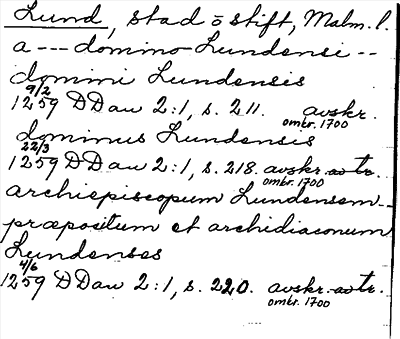 Lund, stad o stift, Malm. l.
a --- domino Lundensi --
domini Lundensis
9/2
1259 DDan 2:1, s. 211. avskr.
omkr. 1700
dominus Lundensis
22/3
1259 DDan 2:1, s. 218. avskr. av tr.
omkr. 1700
archiepiscopum Lundensem --
præpositum et archidiaconum
Lundenses
4/6
1259 DDan 2:1, s. 220. avskr. av tr.
omkr. 1700